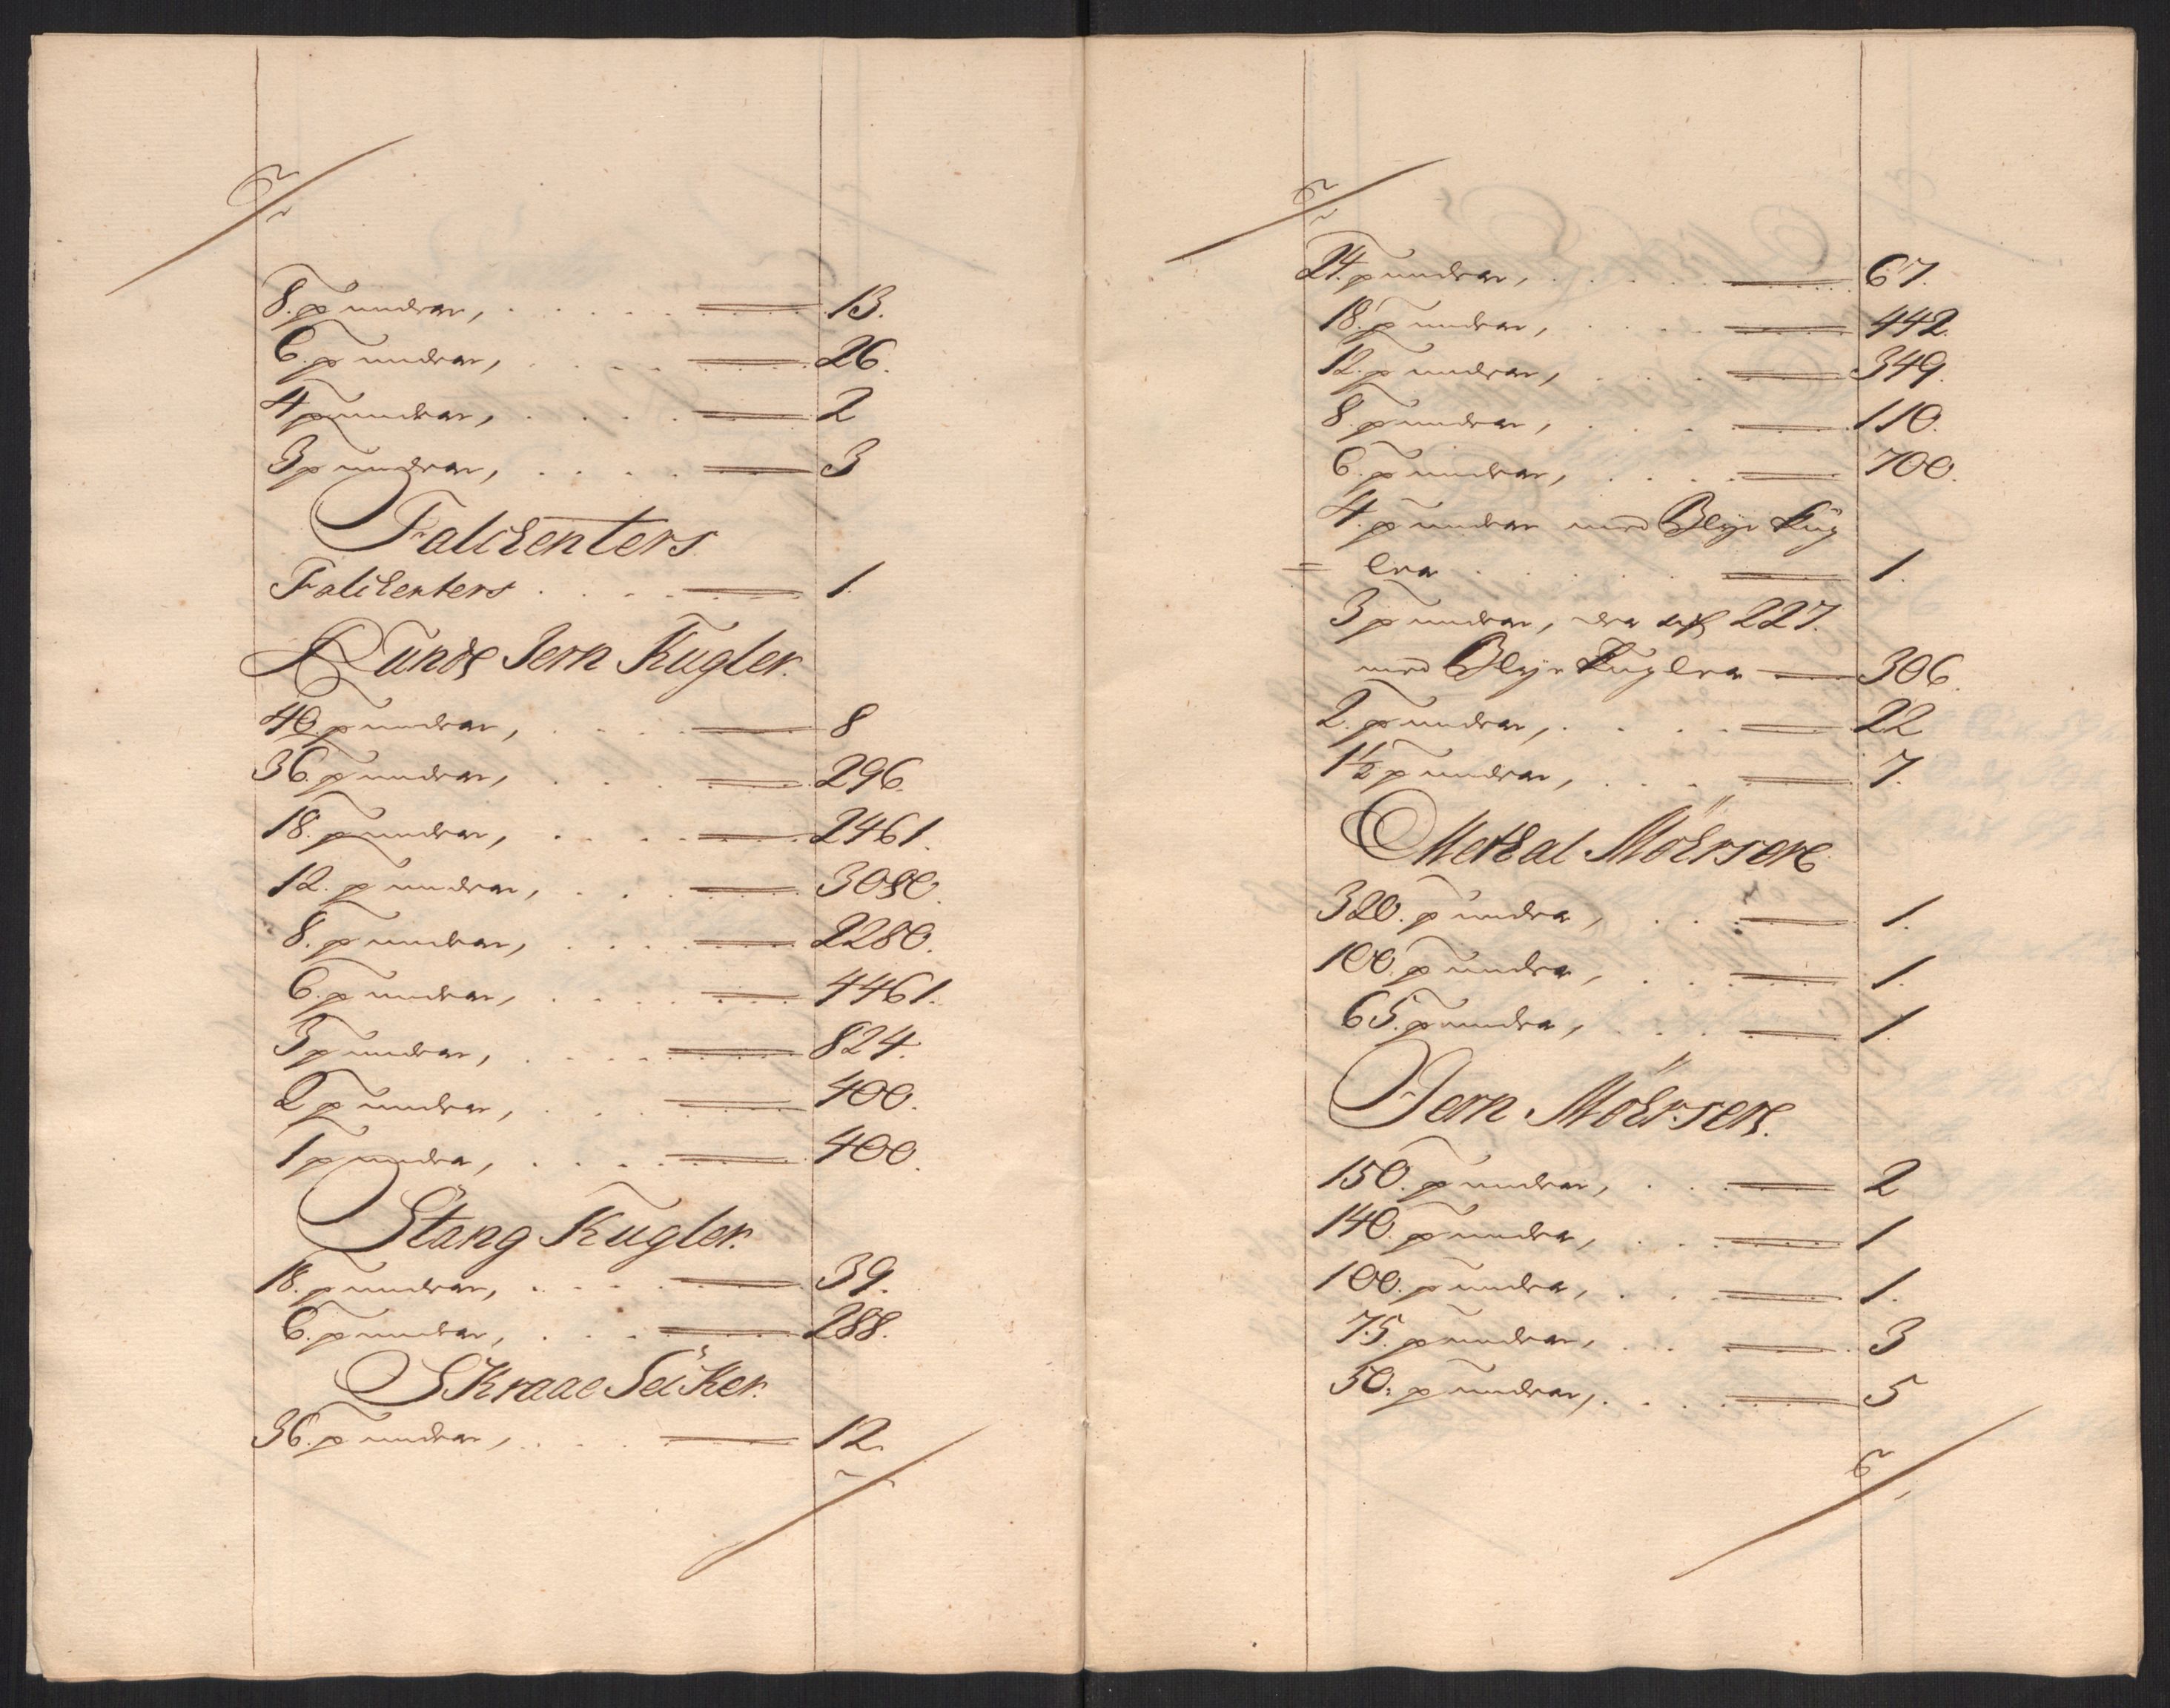 8. pundiger, . . . . . 13.
6. pundiger, . . . . 26.
4 pundiger, . . . . 2
3 pundiger, . . . . 3
Falckenters
Falckenters . . . . 1.
Runde Jern Kugler.
40 pundiger, . . . . 8
36. pundiger, . . . 296.
18. pundiger, . . . . 2461.
12. pundiger, . . . 3080.
8. pundiger, . . . . 2280.
6. pundiger, . . . . 4461.
3 pundiger, . . . . 824.
2 pundiger, . . . 400.
1 pundige, . . . . 400.
Stang Kugler.
18. pundiger, . . . . 39.
6. pundiger, . . . 288.
SKraae Secker.
36. pundiger, . . . . 12.
24. pundiger, . . . . . 67.
18. pundiger, . . . . 442.
12. pundiger, . . . . 349.
8. pundiger, . . . . 110.
6. pundiger, . . . . 700.
4. pundiger med Blye Kug
= ler . . . . . 1.
3 pundiger, der af 227.
med Blye Kugler 306.
2. pundiger, . . . . 22
1½ pundiger, . . . . 7.
Mettal Möersere
320. pundige, . . . 1.
100. pundige, . . . 1.
65. pundige, . . . . 1.
Jern Möersere.
150. pundiger, . . . 2
140. pundige, . . . 1
100. pundige, . . . 1.
75. pundiger, . . . 3
50. pundiger, . . . . 5